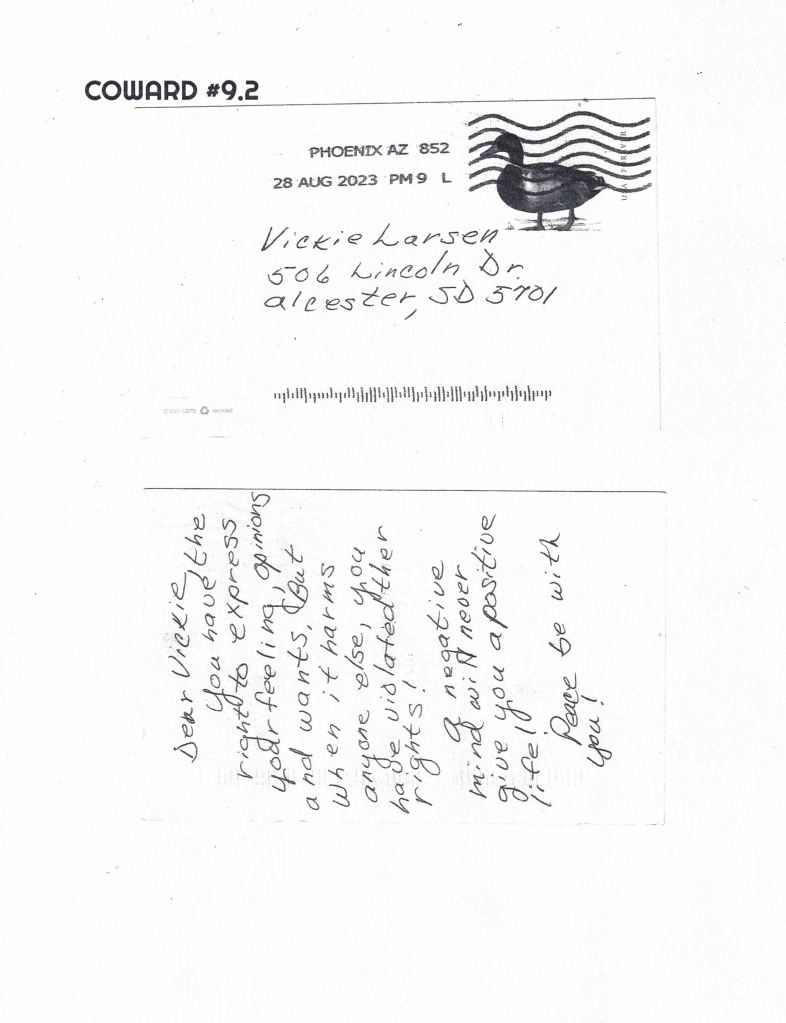 COWARD #9.2
PHOENIX AZ 852
28 AUG 2023 PM 9 L
USA FOREVER
Vickie Larsen
506 Lincoln Dr.
alcester, SD 5701
© 2021 USPS recycled
Dear Vickie,
You have the
right to express
your feeling, opinions
and wants. But
when it harms
anyone else, you
have violated ther
rights!
a negative
mind will never
give you a positive
life!
Peace be with
you!